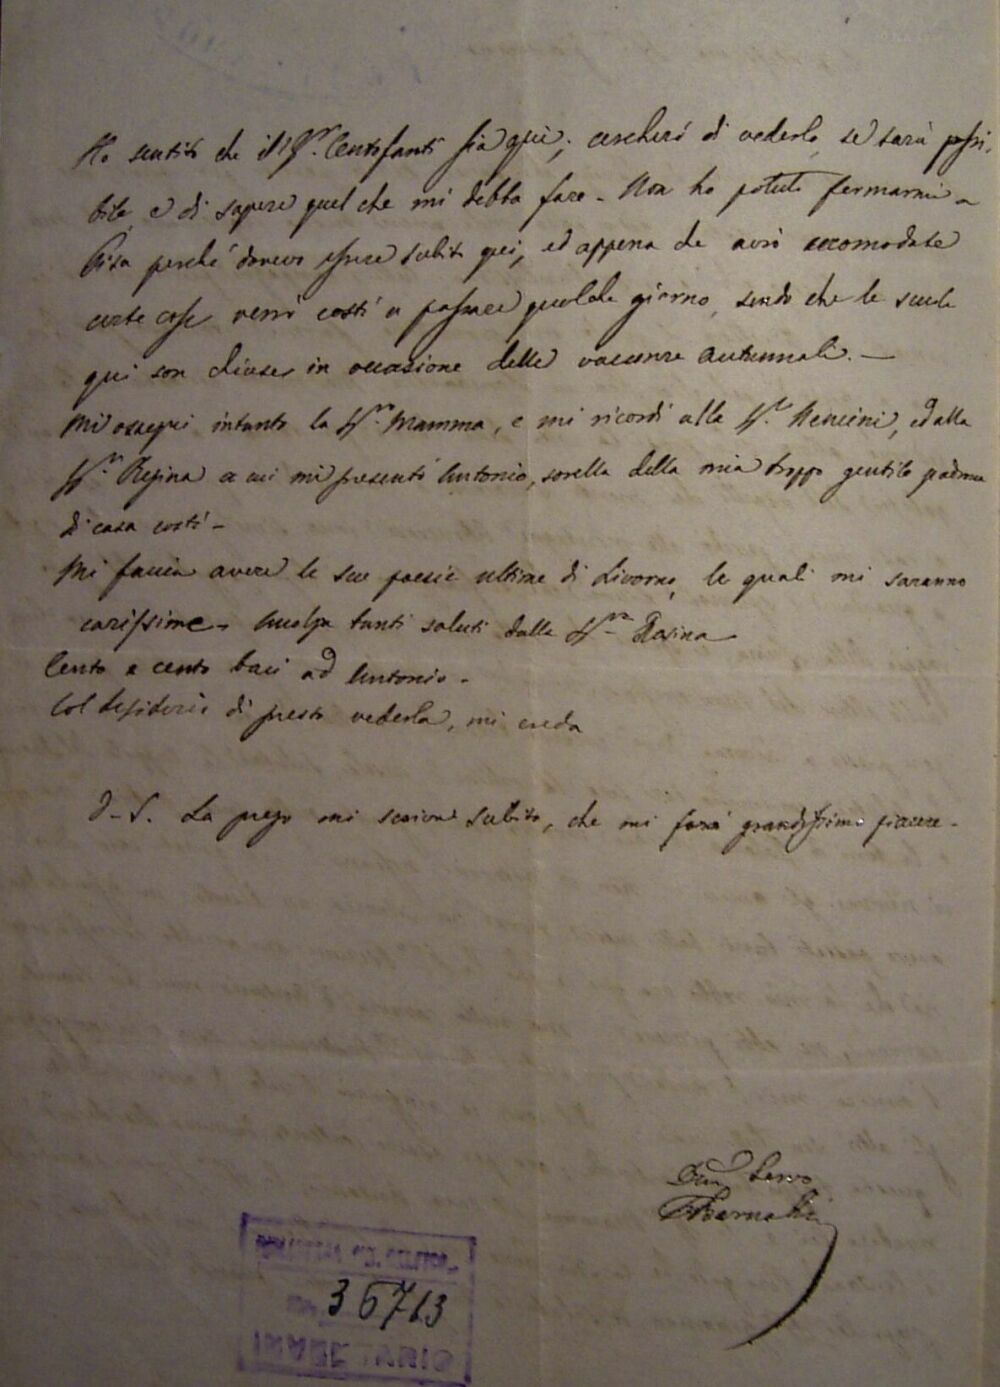 Ho sentito che il Sr. Centofanti sia quì; cercherò di vederlo, se sarà possi-
bile, e di sapere quel che mi debba fare - Non ho potuto fermarmi a
Pisa perché dovevo essere subito qui, ed appena che avrò accomodate
certe cose verrò costì a passare qualche giorno, sendo che le scuole
qui son chiuse in occasione delle vacanze autunnali. —
Mi ossequi intanto la Sra. Mamma, e mi ricordi alla Sra. Nencini, ed alla
Sra. Regina a cui mi presentò Antonio, sorella della mia troppo gentile padrona
di casa costì -
Mi faccia avere le sue poesie ultime di Livorno, le quali mi saranno
carissime - tanti saluti dalla Sra. Rosina
Cento e cento baci ad Antonio -
Col desiderio di presto vederla, mi creda
P.S. La prego mi scrivere subito, che mi farà grandissimo piacere -
Servo
Barnabei
36713